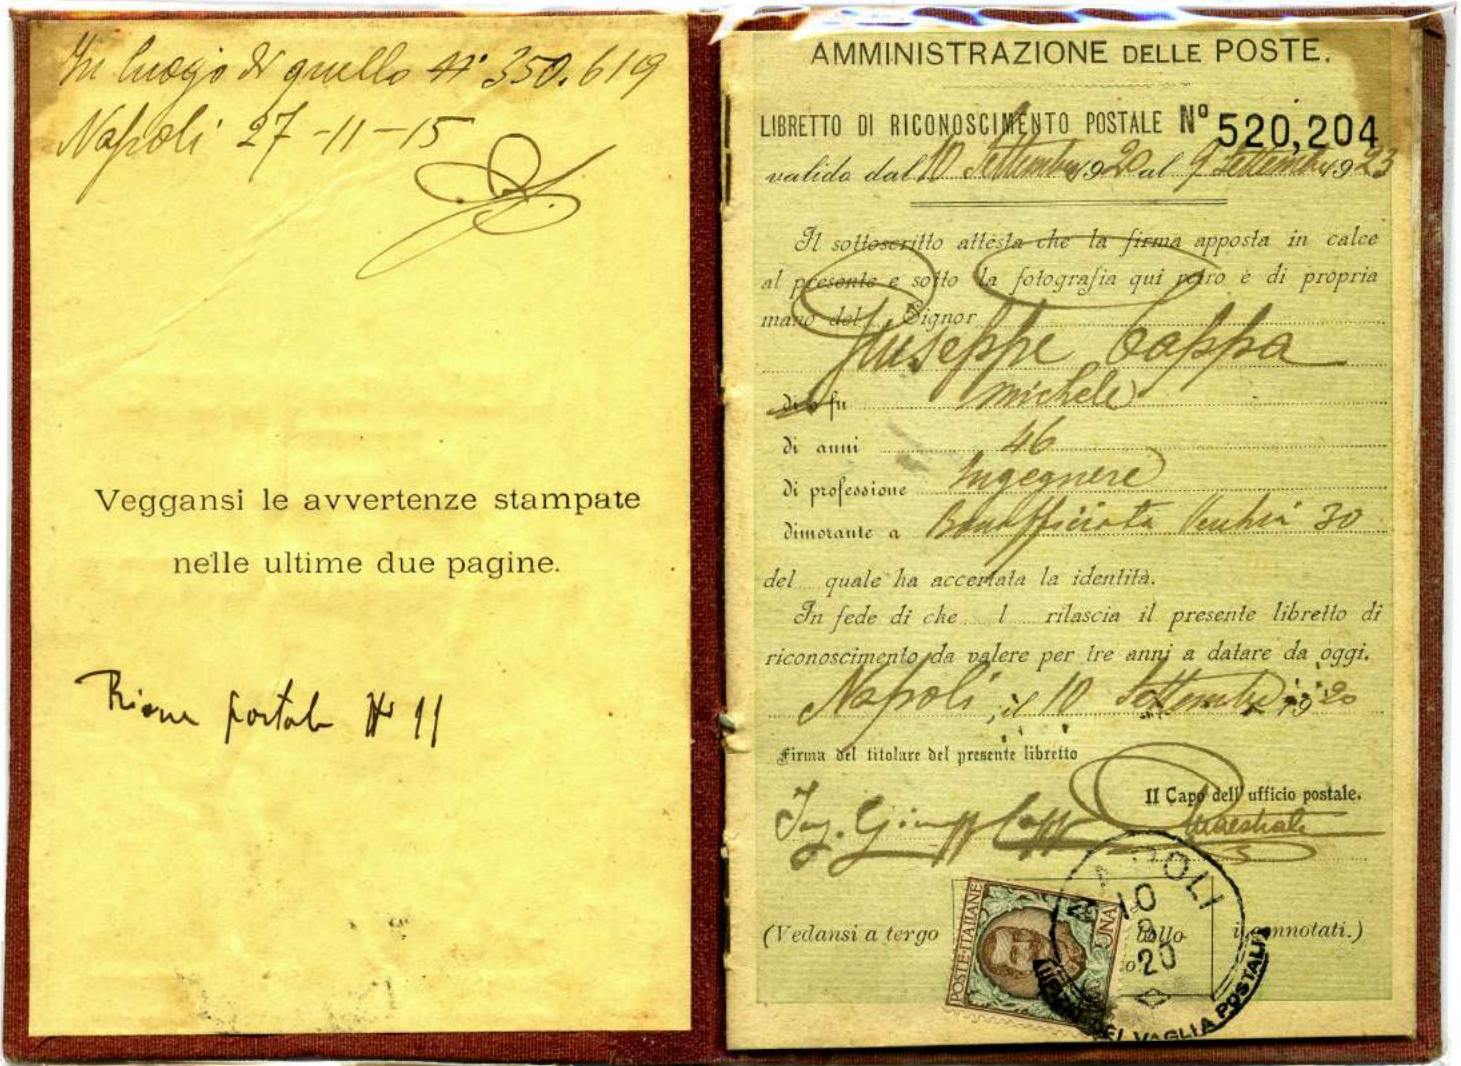 In luogo di quello N° 350.619
Napoli 27-11-15
Veggansi le avvertenze stampate
nelle ultime due pagine.
Rione postale N 11
AMMINISTRAZIONE DELLE POSTE.
LIBRETTO DI RICONOSCIMENTO POSTALE Nº 520,204
valido dal 10 Settembre 1920 al 9 Settembre 1923
Il sottoscritto attesta che la firma apposta in calce
al presente e sotto la fotografia qui retro è di propria
mano del Signor
Giuseppe Cappa
di o fu Michele
di anni 46
di professione Ingegnere
dimorante a Vecchia 30
del quale ha accertata la identità.
In fede di che l rilascia il presente libretto di
riconoscimento da valere per tre anni a datare da oggi.
Napoli, il 10 Settembre 1920
Firma del titolare del presente libretto
Il Capo dell'ufficio postale.
Ing. Giuseppe Cappa
(Vedansi a tergo i connotati.)
bollo
POSTE ITALIANE
UNA
NAPOLI
10
9
20
DEL VAGLIA POSTALI